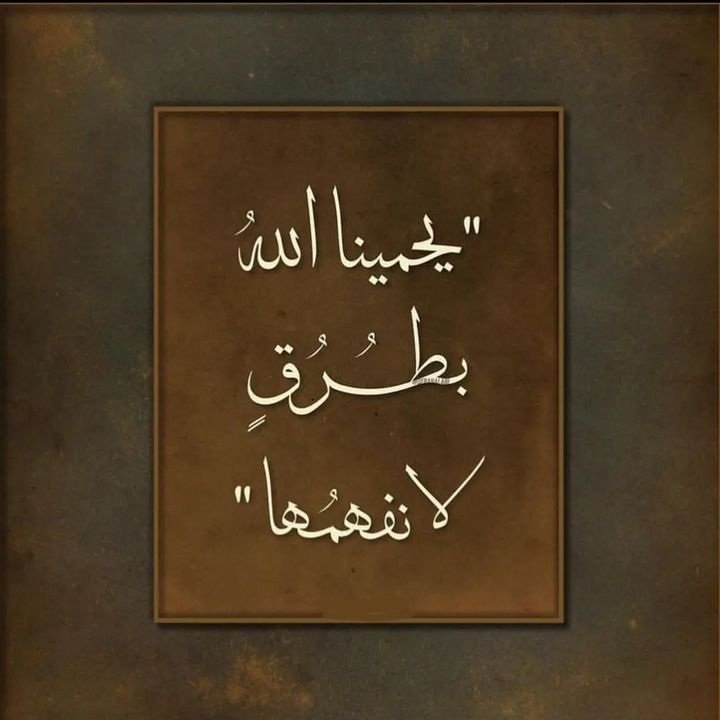 "يحمينا اللهُ
بطُرُقٍ
لا نفهمُها"